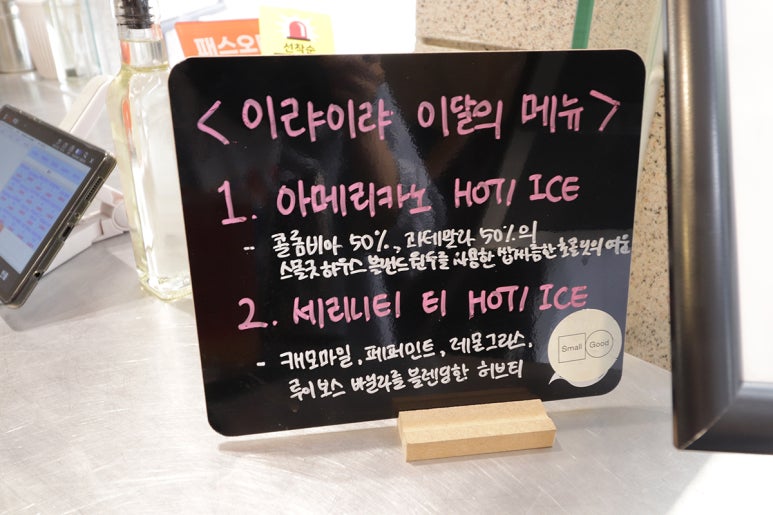 패스오
선착순
<이랴이랴 이달의 메뉴>
1. 아메리카노 HOT/ICE
- 콜롬비아 50%, 과테말라 50%의
스몰굿 하우스 블랜드 원두를 사용한 쌉싸름한 초콜릿의 여운
2. 세리니티 티 HOT/ICE
- 캐모마일, 페퍼민트, 레몬그라스,
루이보스 바닐라를 블렌딩한 허브티
Small Good